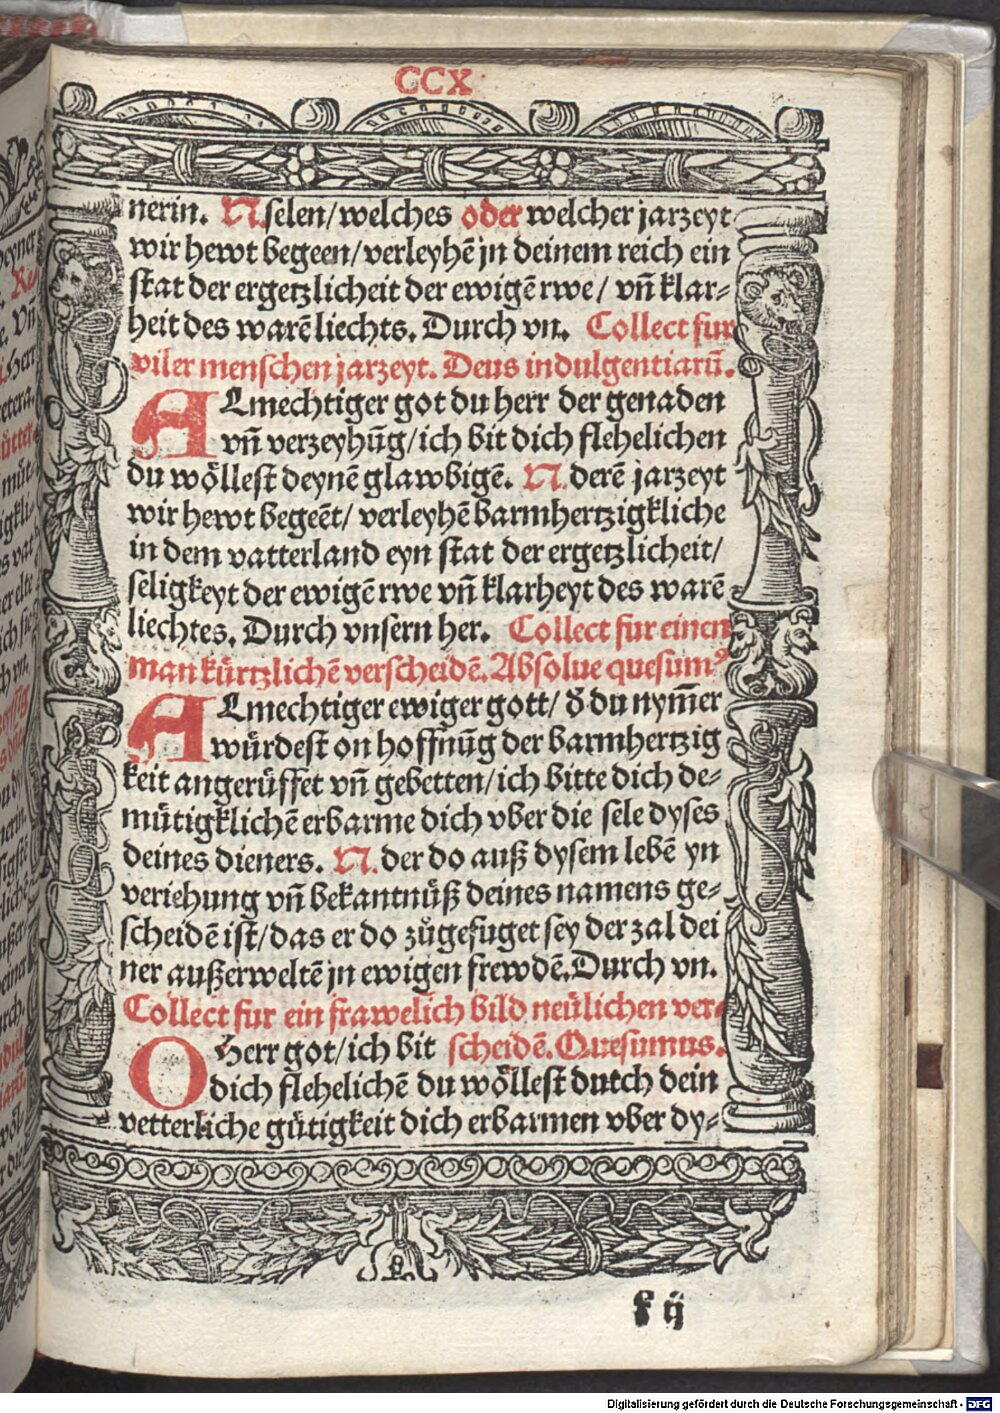 CCX
nerin. N. selen/welches oder welcher jarzeyt
wir hewt begeen/verleyhē jn deinem reich ein
stat der ergetzlicheit der ewigē rwe/ vn̄ klar⸗
heit des warē liechts. Durch vn. Collect fur
viler menschen jarzeyt. Deus indulgentiarū.
ALmechtiger got du herr der genaden
vn̄ verzeyhūg/ich bit dich flehelichen
du wöllest deynē glawbigē. N. derē jarzeyt
wir hewt begeēt/ verleyhē barmhertzigkliche
in dem vatterland eyn stat der ergetzlicheit/
seligkeyt der ewigē rwe vn̄ klarheyt des warē
liechtes. Durch vnsern her. Collect fur einen
man kürtzlichē verscheidē. Absolue quesumꝰ
ALmechtiger ewiger gott/ d̄ du nym̄er
würdest on hoffnūg der barmhertzig
keit angerüffet vn̄ gebetten/ich bitte dich de⸗
mütigklichē erbarme dich vber die sele dyses
deines dieners. N. der do auß dysem lebē yn
veriehung vn̄ bekantnüß deines namens ge⸗
scheidē ist/das er do zůgefuget sey der zal dei
ner außerweltē jn ewigen frewdē. Durch vn.
Collect fur ein frawelich bild neülichen ver⸗
O Herr got/ich bit scheidē. Quesumus.
dich flehelichē du wöllest dutch dein
vetterliche gütigkeit dich erbarmen vber dy⸗
k ij
Digitalisierung gefördert durch die Deutsche Forschungsgemeinschaft - DFG